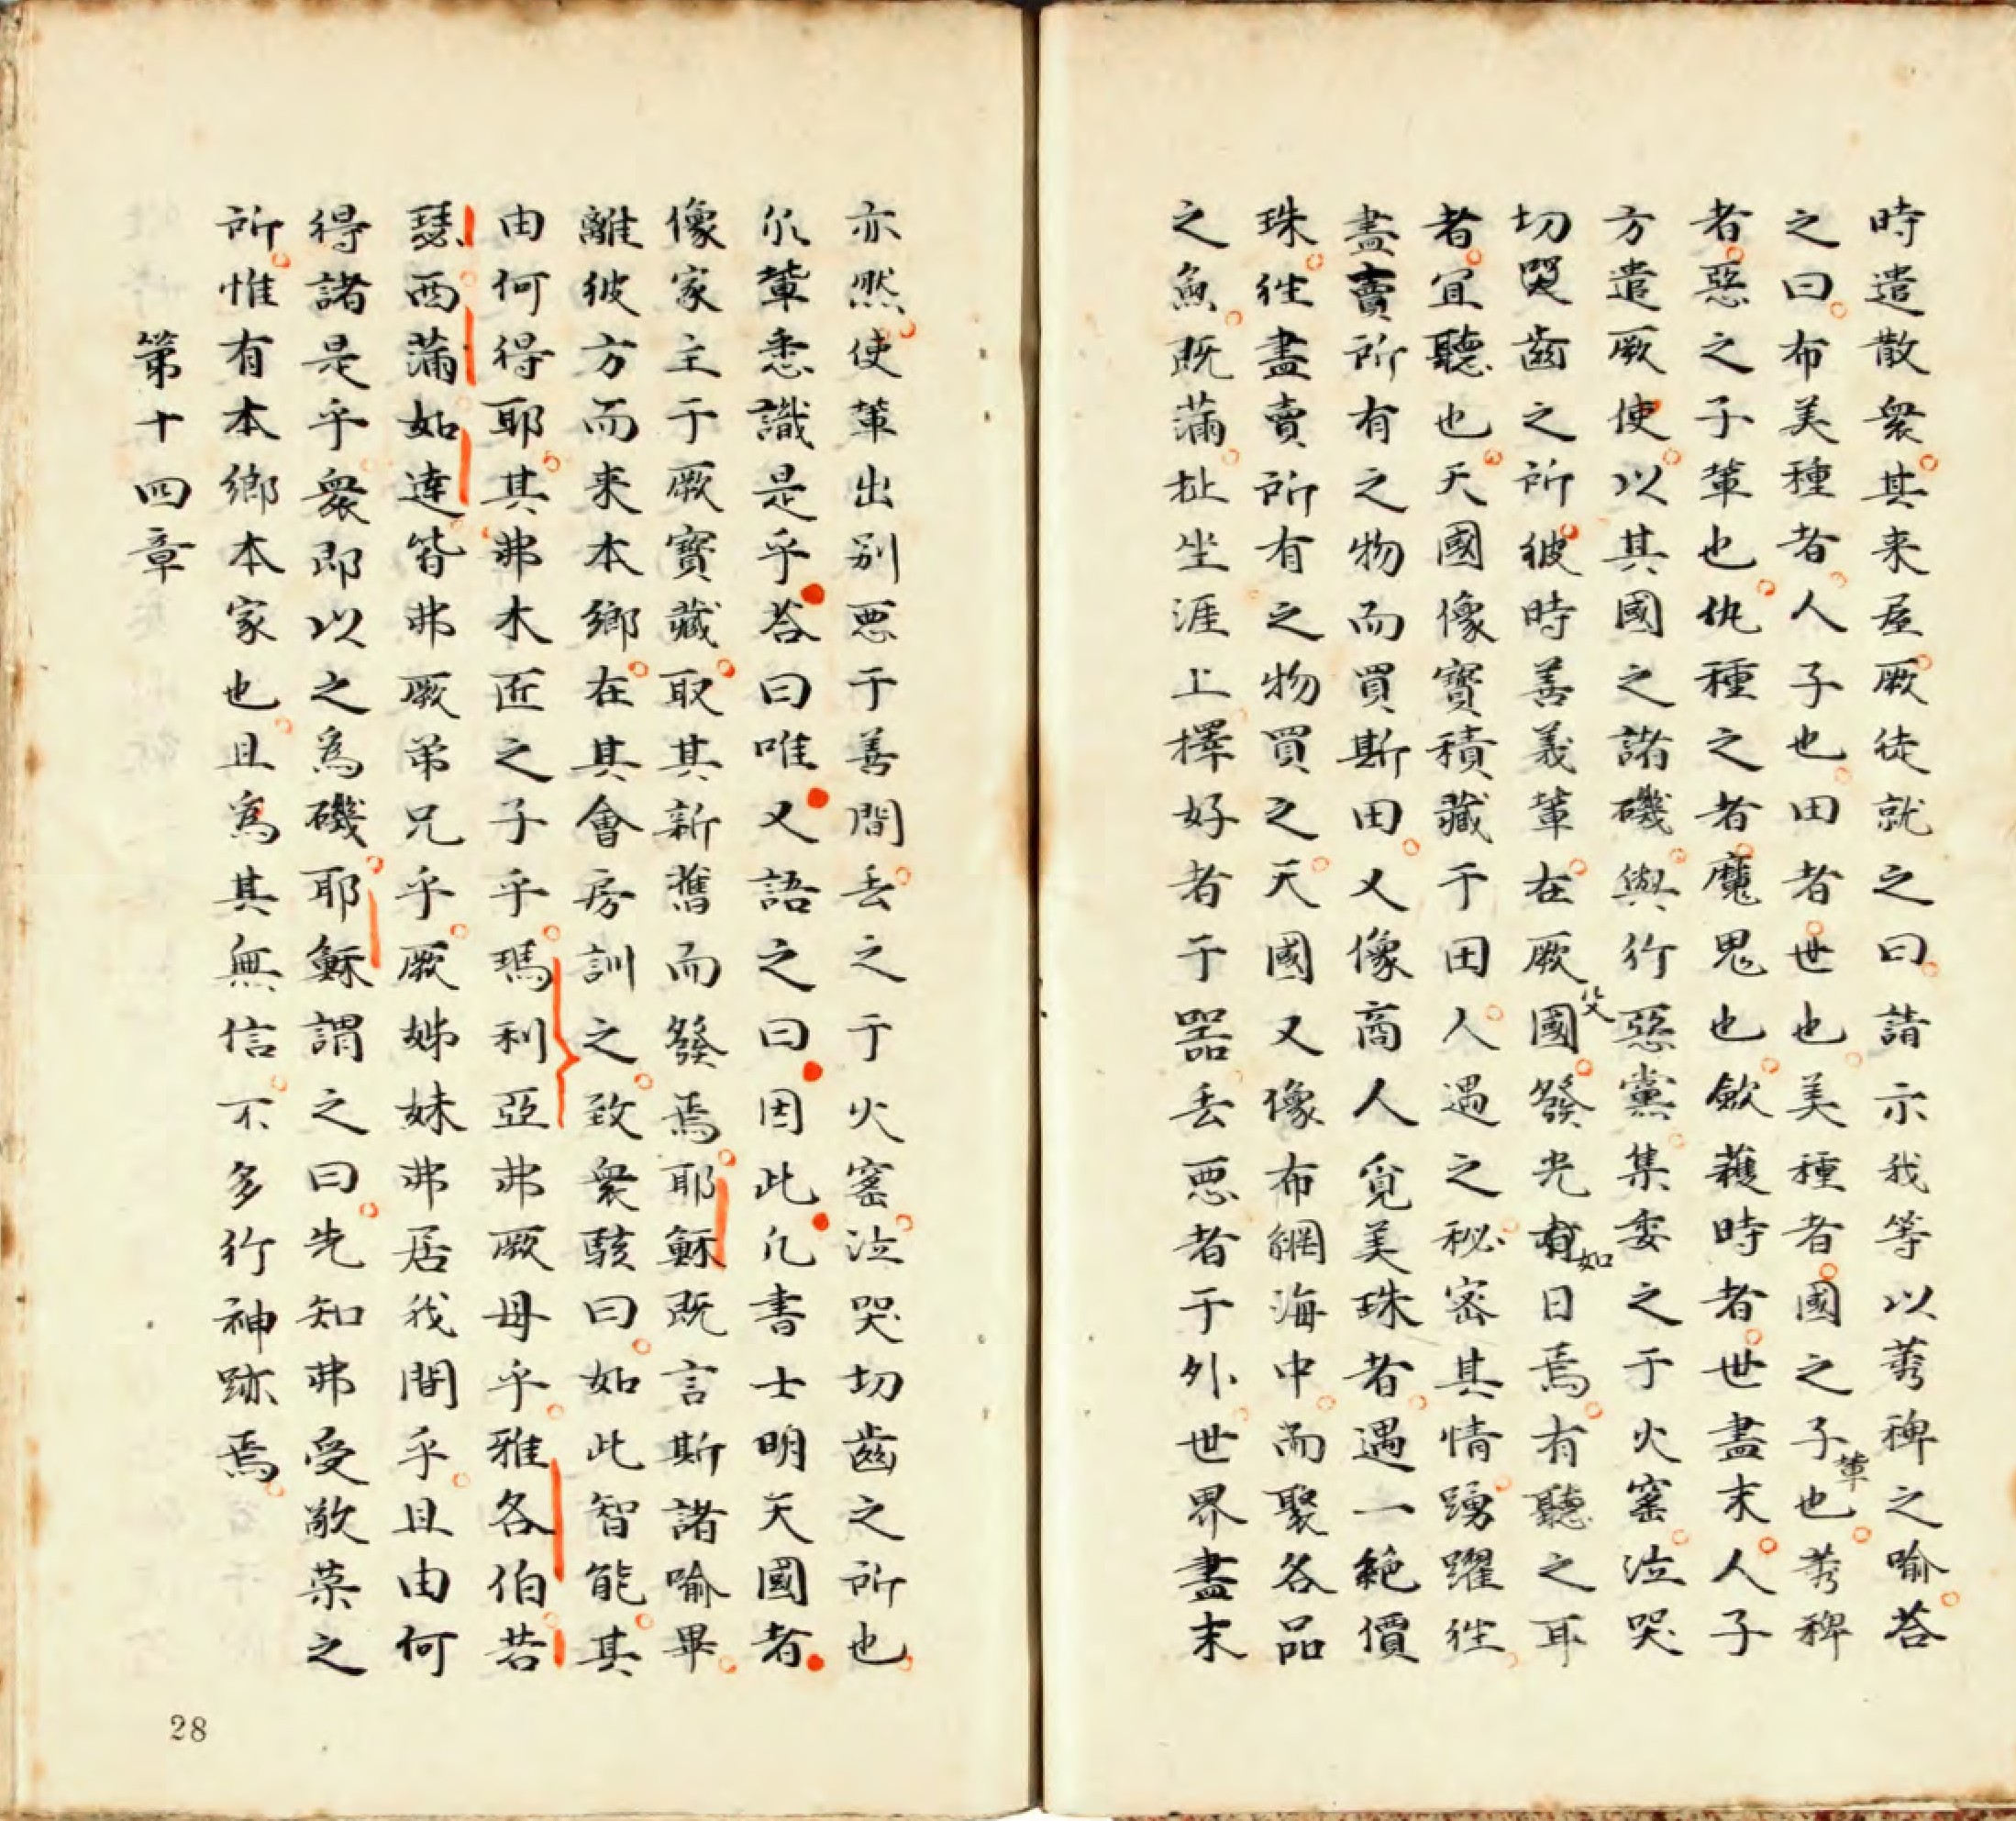 時遣散衆其来屋厥徒就之曰請示我等以莠稗之喻荅
之曰布美種者人子也田者世也美種者國之子輩也莠稗
者惡之子輩也仇種之者魔鬼也斂穫時者世盡末人子
方遣厥使以其國之諸磯與行惡黨集委之于火窰泣哭
切哭齒之所彼時善義輩在厥父國發光如日焉有聽之耳
者宜聽也天國像寶積藏于田人遇之秘密其情踴躍徃
盡賣所有之物而買斯田又像商人覓美珠者遇一絶價
珠徃盡賣所有之物買之天國又像布網海中而聚各品
之魚既滿扯坐涯上擇好者于器丢悪者于外世界盡末
亦然使輩出别悪于善間丢之于火窰泣哭切齒之所也
尔輩悉識是乎荅曰唯又語之曰因此凢書士明天國者
像家主于厥寶藏取其新舊而發焉耶穌既言斯諸喻畢
離彼方而来本鄉在其會房訓之致衆駭曰如此智能其
由何得耶其弗木匠之子乎瑪利亞弗厥母乎雅各伯若
瑟西滿如達皆弗厥弟兄乎厥姊妹弗居我間乎且由何
得諸是乎衆即以之為磯耶穌謂之曰先知弗受敬葉之
所惟有本鄉本家也且為其無信不多行神跡焉
第十四章
28